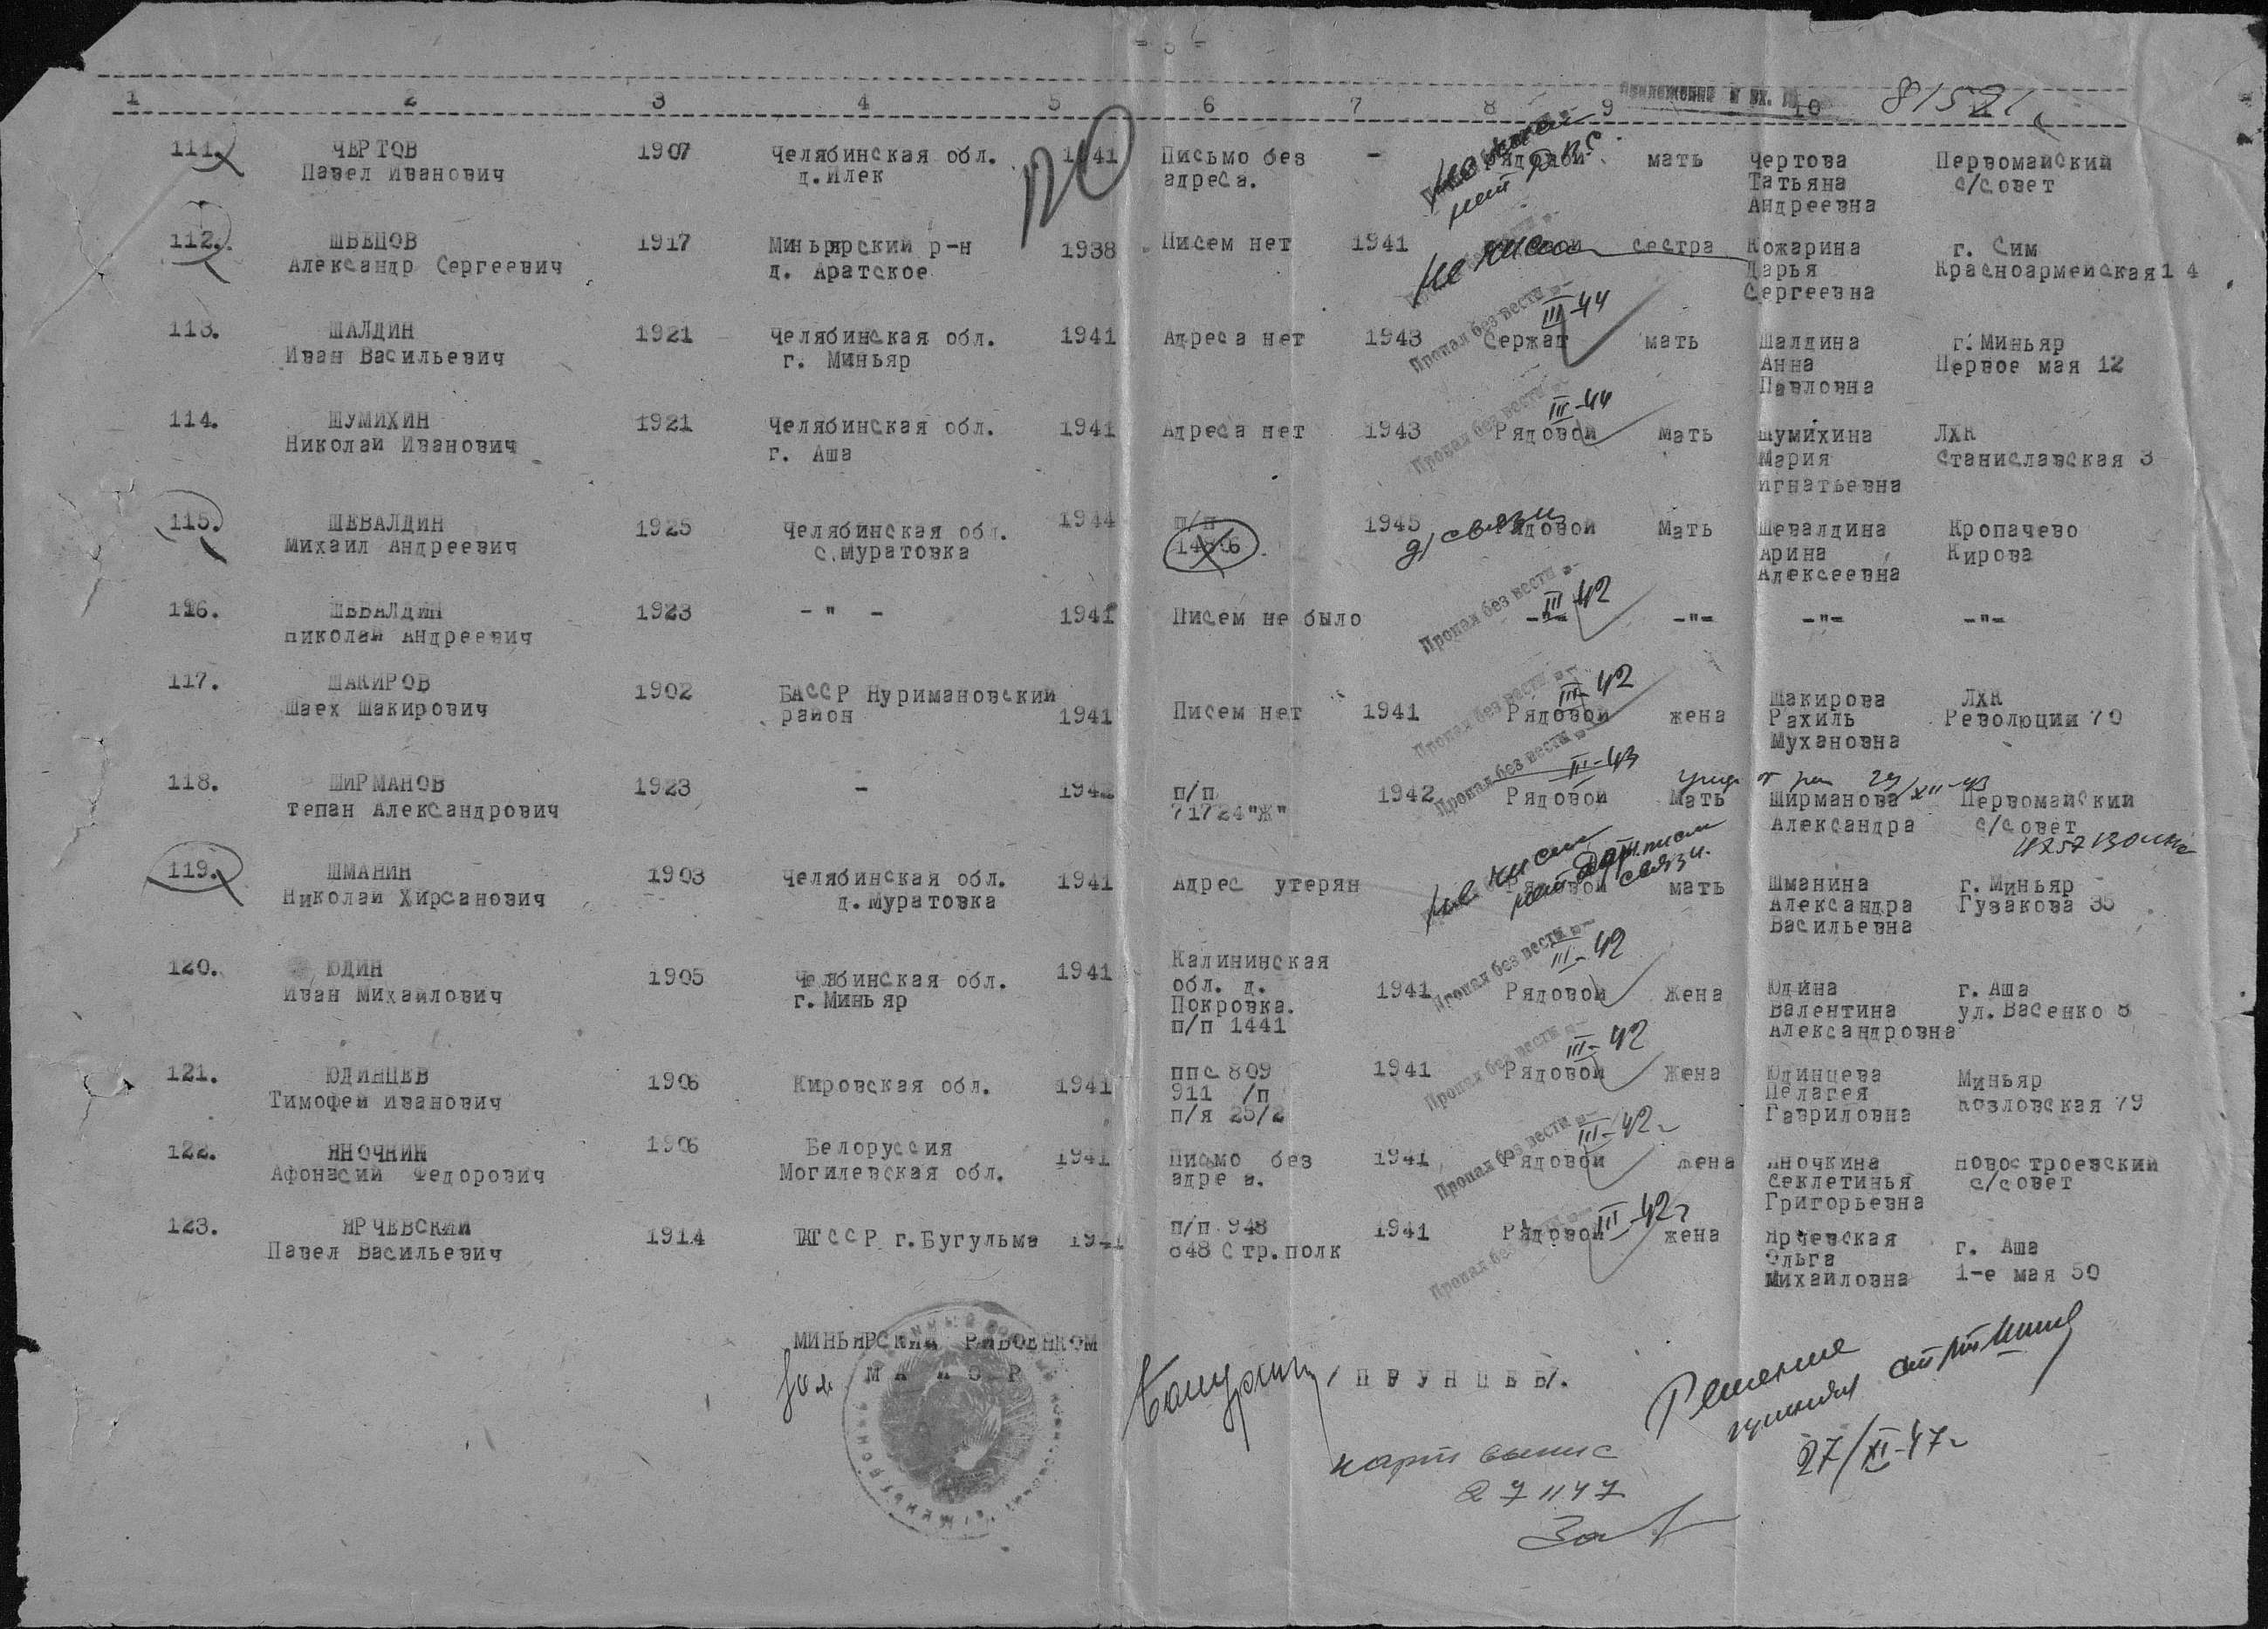 1 2 3 4 5 6 7 8 9 10
Приложение к вх. № 81521
111. ЧЕРТОВ 1907 Челябинская обл. 1941 Письмо без - Рядовой мать Чертова Первомайский
Павел Иванович д.Илек адреса. Татьяна с/совет
Андреевна
112. ШВЕЦОВ 1917 Миньярский р-н 1938 Писем нет 1941 сестра Кожарина г. Сим
Александр Сергеевич д. Аратское Дарья Красноармейская 14
Сергеевна
113. ШАЛДИН 1921 Челябинская обл. 1941 Адреса нет 1943 Пропал без вести III-44 Сержат мать Шалдина г. Миньяр
Иван Васильевич г. Миньяр Анна Первое мая 12
Павловна
114. ШУМИХИН 1921 Челябинская обл. 1941 Адреса нет 1943 Пропал без вести III-44 Рядовой мать Шумихина ЛХК
Николай Иванович г. Аша Мария Станиславская 3
Игнатьевна
115. ШЕВАЛДИН 1925 Челябинская обл. 1944 п/п 1945 Рядовой Мать Шевалдина Кропачево
Михаил Андреевич с.Муратовка Арина Кирова
Алексеевна
116. ШЕВАЛДИН 1923 -"- 1941 Писем не было Пропал без вести III-42 -"- -"- -"- -"-
Николай Андреевич
117. ШАКИРОВ 1902 БАССР Нуримановский Шакирова ЛХК
Шаех Шакирович район 1941 Писем нет 1941 Пропал без вести III-42 Рядовой жена Рахиль Революции 70
Мухановна
118. ШИРМАНОВ 1923 - 1942 п/п 1942 Пропал без вести III-43 Рядовой Мать Ширманова Первомайский
тепан Александрович 71724"Ж" Александра с/совет
119. ШМАНИН 1903 Челябинская обл. 1941 Адрес утерян Рядовой мать Шманина г.Миньяр
Николай Хирсанович д.Муратовка Александра Гузакова 35
Васильевна
120. ЮДИН 1905 Челябинская обл. 1941 Калининская
Иван Михайлович г.Миньяр обл. д. 1941 Пропал без вести III-42 Рядовой Жена Юдина г. Аша
Покровка. Валентина ул.Васенко 8
п/п 1441 Александровна
121. ЮДИНЦЕВ 1906 Кировская обл. 1941 ппс 809 1941 Пропал без вести III-42 Рядовой Жена Юдинцева Миньяр
Тимофей Иванович 911 /п Пелагея Козловская 79
п/я 25/2 Гавриловна
122. ЯНОЧКИН 1906 Белоруссия 1941 Письмо без 1941 Пропал без вести III-42г Рядовой жена Яночкина Новостроевский
Афонасий Федорович Могилевская обл. адре а. Секлетинья с/совет
Григорьевна
123. ЯРЧЕВСКИЙ 1914 ТАТССР г.Бугульма 1941 п/п 948 1941 Пропал без вести III-42г Рядовой жена Ярчевская
Павел Васильевич 848 Стр.полк Ольга г. Аша
Михайловна 1-е мая 50
МИНЬЯРСКИЙ РАЙВОЕНКОМ
МАЙОР
Решение
27/XI-47г
карт выпис
27 11 47